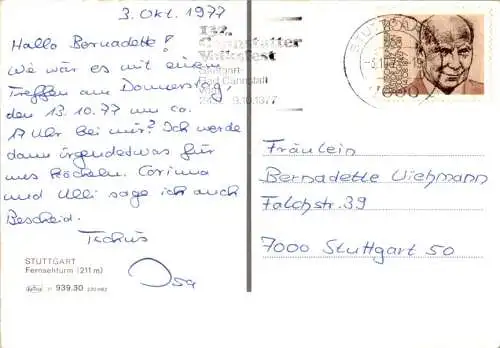 3. Okt. 1977
Hallo Bernadette!
Wie wär es mit einem
Treffen am Donnerstag,
den 13.10.77 um ca.
17 Uhr bei mir? Ich werde
dann irgendetwas für
uns köcheln. Corinna
und Ulli sage ich auch
Bescheid.
Tschüs
Isa
STUTTGART
Fernsehturm (211 m)
939.30
132.
Cannstatter
Volksfest
Stuttgart-
Bad Cannstatt
9.10.1977
STUTTG
7000
Fräulein
Bernadette Viehmann
Falchstr. 39
7000 Stuttgart 50